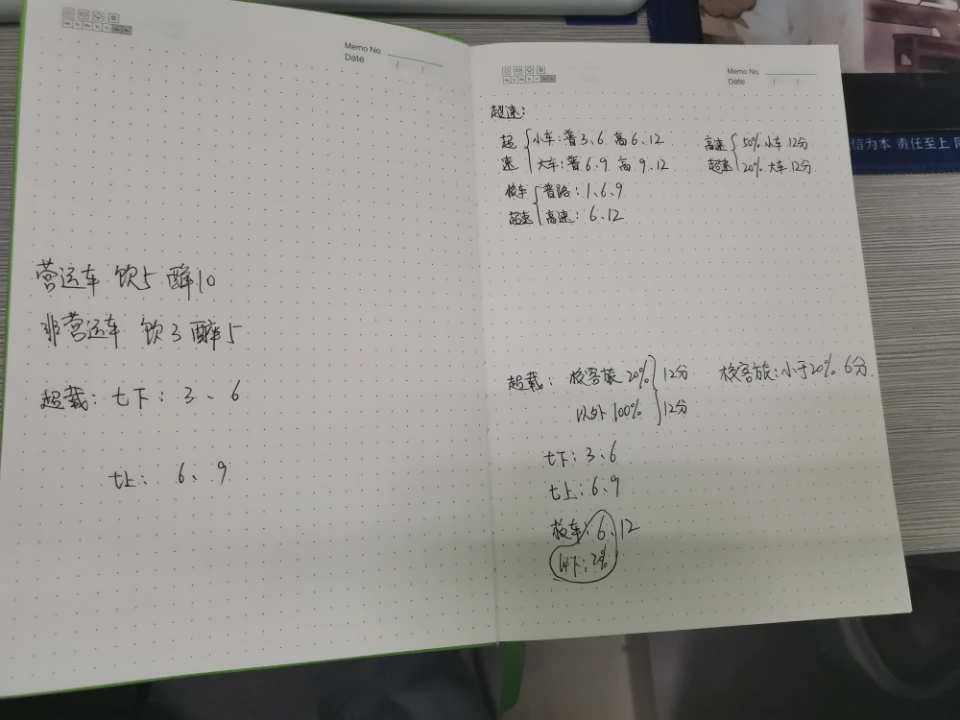 Memo No.
Date
营运车 饮5 醉10
非营运车 饮3 醉5
超载：七下：3、6
七上：6、9
Memo No.
Date
超速：
超速 小车：普3、6 高6、12
大车：普6、9 高9、12
高速超速 50% 小车 12分
20% 大车 12分
校车超速 普路：1、6、9
高速：6、12
超载：校客旅 20% 12分
以外 100% 12分
校客旅：小于20% 6分
七下：3、6
七上：6、9
校车：6、12
以下：20%
信为本 责任至上